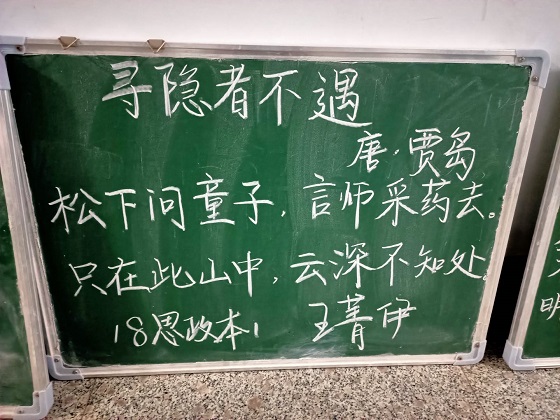 寻隐者不遇
唐·贾岛
松下问童子，言师采药去。
只在此山中，云深不知处。
18思政本1 王菁伊
明